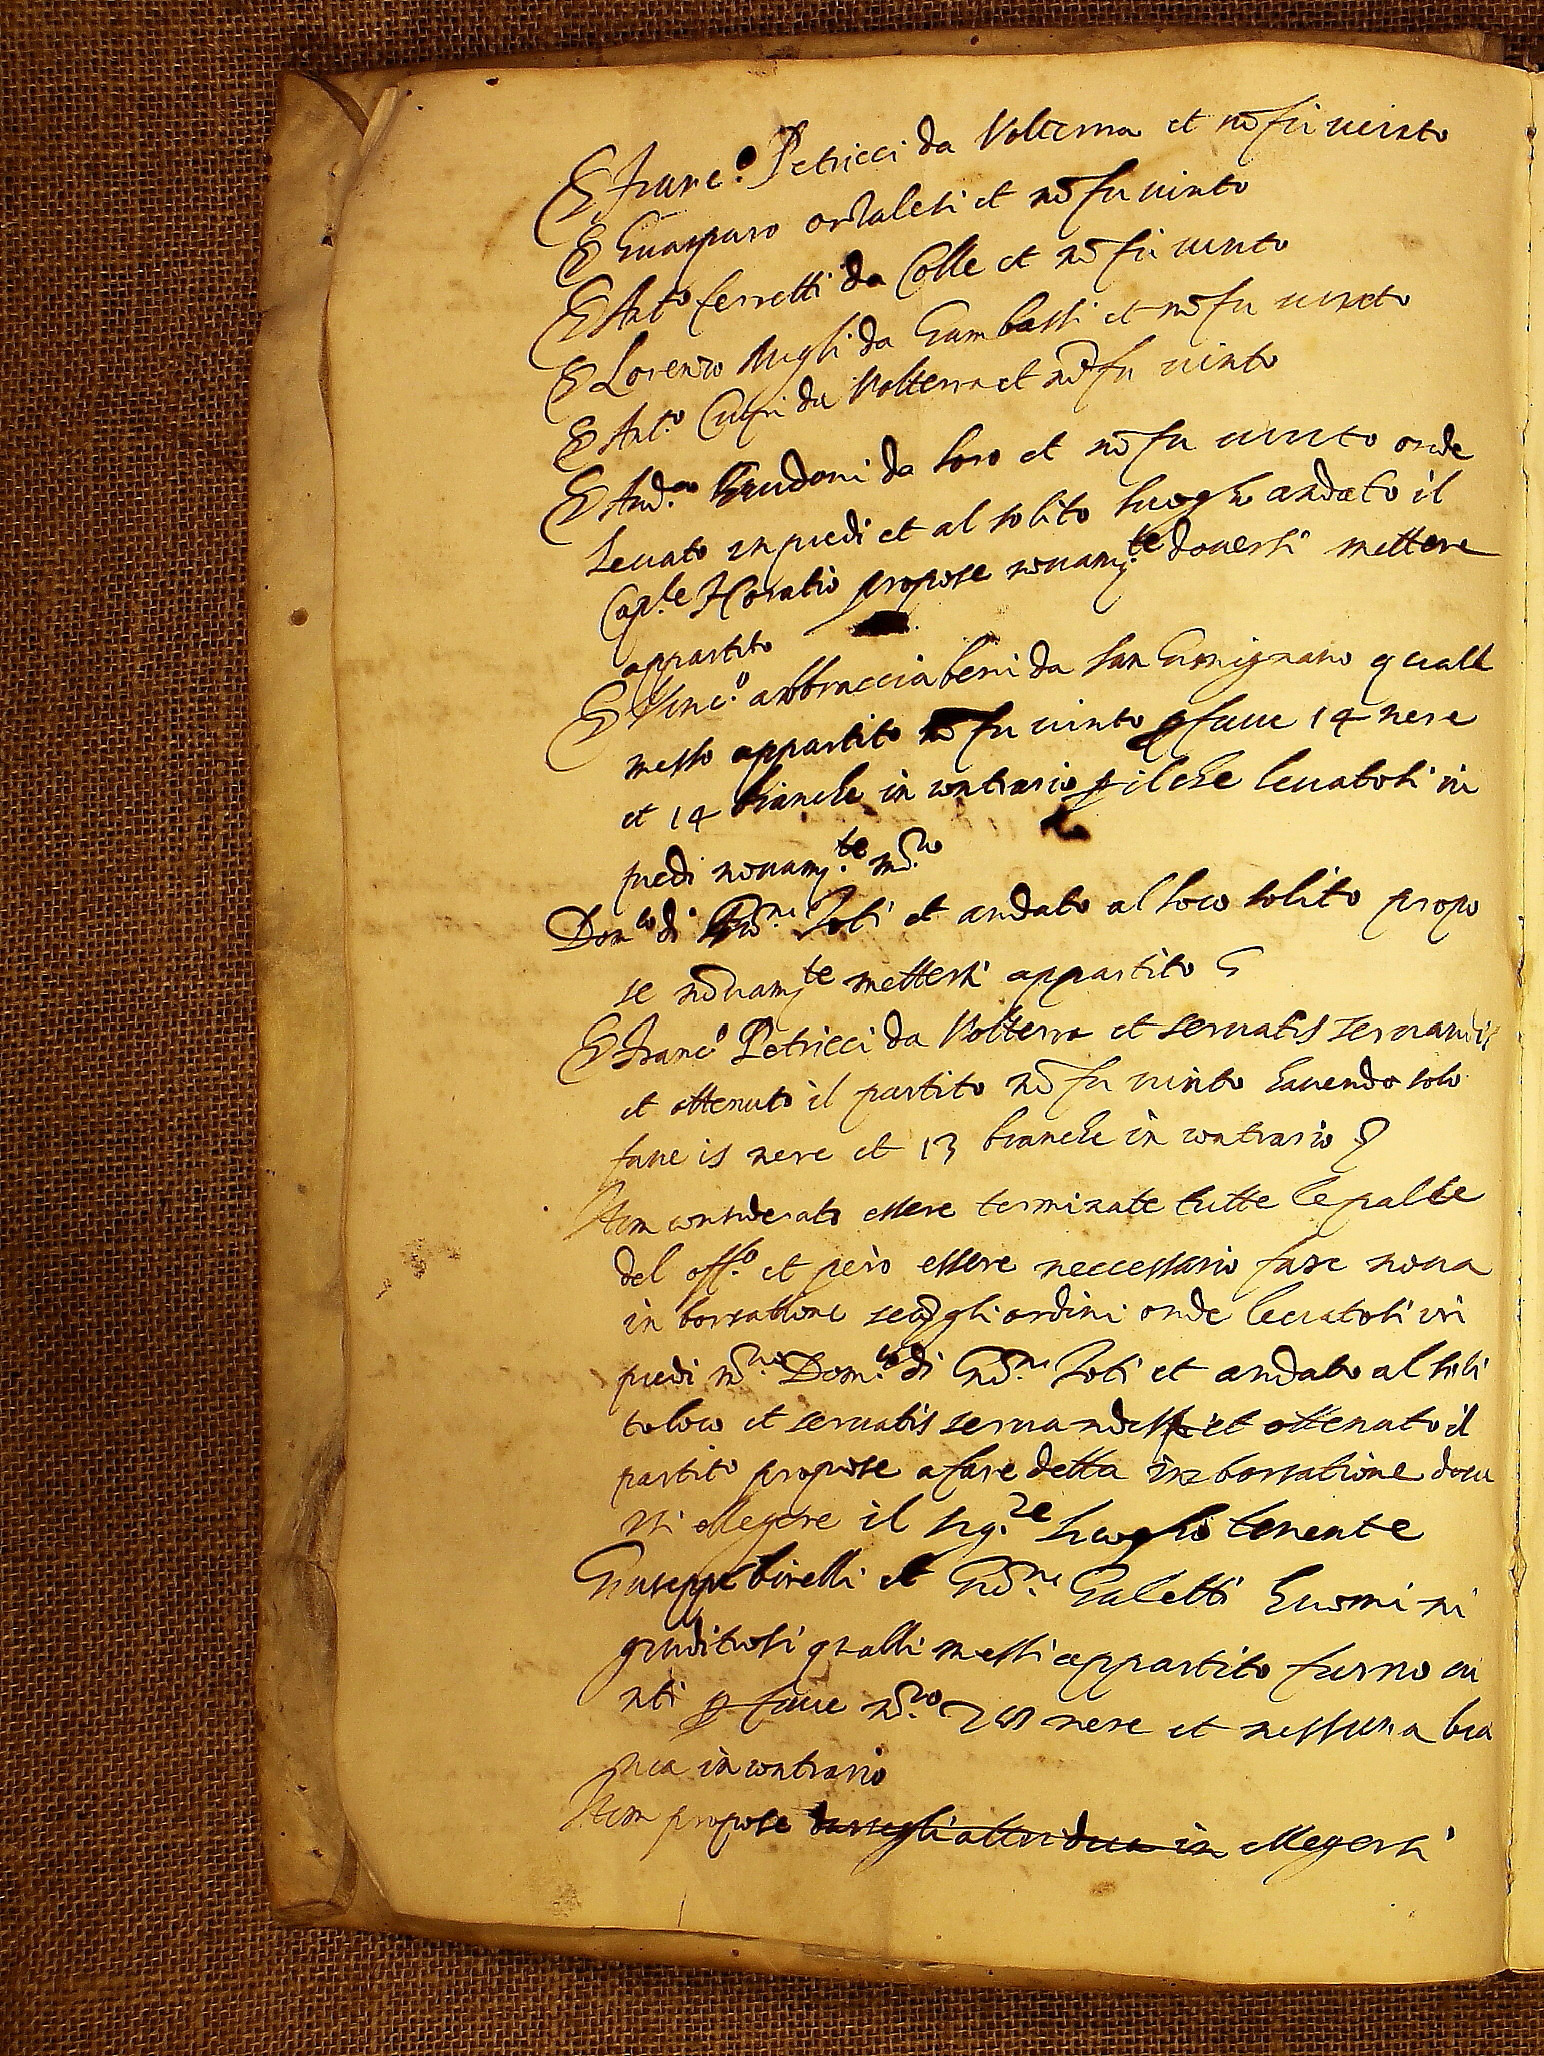 E Franc.o Petricci da Volterra et nō fu uinto
E Guasparo ortalesi et nō fu uinto
E Ant.o ferretti da Colle et nō fu uinto
E Lorenzo da Gambassi et nō fu uinto
E Ant.o da Volterra et nō fu uinto
E And.a da et nō fu uinto onde
leuato in piedi et al solito luogho andato il
Cap.le Horatio propose nouam.te douersi mettere
appartito
E Vinc.o abbracciabeni da san Gimignano qualle
messo appartito nō fu uinto p faue 14 nere
et 14 bianche in contrario p il che leuatosi in
piedi nouam.te
Dom.co di Giō.ni Toti et andato al loco solito propo
se nouam.te mettersi appartito
E Franc.o Petricci da Volterra et seruatis seruandis
et ottenuto il partito nō fu uinto hauendo solo
faue 15 nere et 13 bianche in contrario
Item considerato essere terminate tutte le palle
del off.o et però essere neccessario fare noua
in borsatione gli ordini onde leuatosi in
piedi Dom.co di Giō.ni Toti et andato al soli
to loco et seruatis seruandis et ottenuto il
partito propose a fare detta inborsatione doue
rsi ellegere il sig.re luogho tenente
Giuseppe birelli et Giō.ni Galetti huomini
giuditiosi qualli messi appartito furno ui
nti p faue n.ro 28 nere et nessuna bia
nca in contrario
Item propose gli altri dua in ellegersi